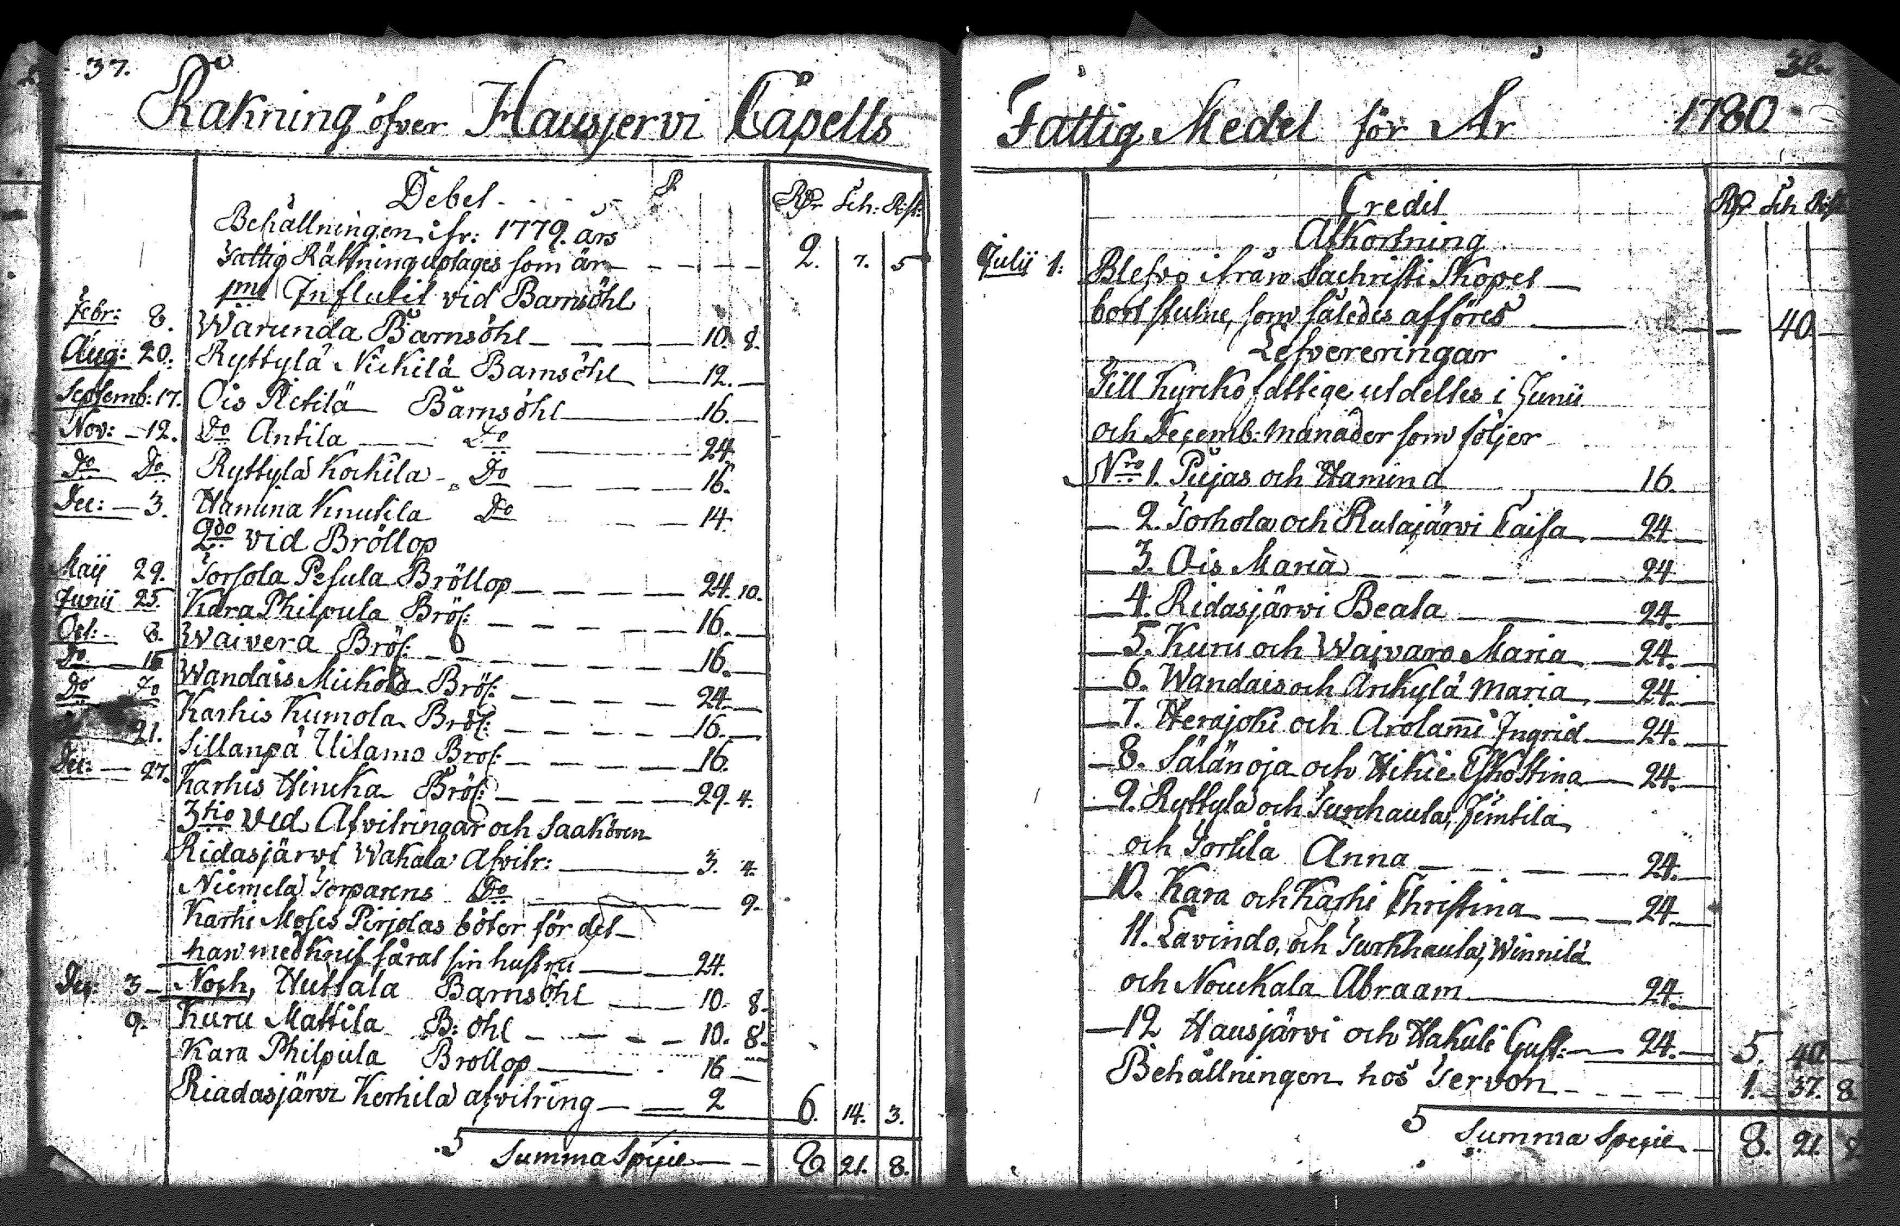 37.
Räkning öfver Hausjervi Capells
Debet
Rdr Sch: Rst:
Behållningen ifr: 1779. års
Fattig Räkning uptages som är — — — — 2. 7. 5
pmo Influtit vid Barnsöhl
Febr: 8. Warunda Barnsöhl — — — — 10. 8.
Aug: 20. Ryttylä Nickilä Barnsöhl — 12. —
Septemb: 17. Ois Pietilä Barnsöhl — 16. —
Nov: — 12. Do Antila — Do — 24.
Do Do Ryttylä Kockila — Do — 16.
Dec: — 3. Hamina Knutila Do — 14.
2do vid Bröllop
Maij 29. Torhola Pesula Bröllop — — — 24. 10.
Junii 25. Kara Philpula Bröl: — — — 16. —
Oct: 8. Waivera Bröl: — — — 16. —
Do 15 Wandais Mickola Bröl: — 24. —
Do Do Karhis Kumola Bröl: — — — 16. —
21. Sillanpä Uilamo Bröl: — — — 16.
Dec: — 27. Karhis Hincka Bröl: — — — 29. 4.
3tio vid Afvitringar och Saakören
Ridasjärvi Wakala Afvitr: — 3. 4.
Niemelä Torparens Do — 9.
Karhi Moses Pirjolas böter för det
han med Knif sårat sin hustru — 24.
Dec: 3 — Noch, Huttala Barnsöhl — 10. 8.
9. Kuru Mattila B: öhl — — — 10. 8.
Kara Philpula Bröllop — 16 —
Riadasjärvi Kerhilä afvitring — — 2 6. 14. 3.
5 Summa Specie — — 8. 21. 8.
Fattig Medel för År 1780
Credit
Rdr Sch Rst
Afkortning
Julii 1. Blefvo ifrån Sachristi Skåpet
bort stulne, som således afföres — 40. —
Lefvereringar
Till Kyrko fattige utdeltes i Junii
och Decemb: månader som följer
Nro 1. Pujas och Hamina — 16.
— 2. Torhola och Rutajärvi Caisa — 24 —
3. Ois Maria — — — 24
— 4. Ridasjärvi Beata — 24. —
— 5. Kuru och Waivaro Maria — 24. —
— 6. Wandais och Arckylä Maria — 24. —
— 7. Herajoki och Arolami Ingrid — 24. —
— 8. Sälänoja och Hikie — 24. —
— 9. Ryttylä och Turckhauta,
och Torhila Anna — — — 24. —
— 10. Kara och Karhi Christina — — 24. —
11. Lavinda, och Turkhauta, Winnilä
och Nouckala Abraam — 24. —
— 12 Hausjärvi och Hakuli Gust: — 24. — 5. 40 —
Behållningen hos Tervon — — — 1. 37. 8
5 Summa Specie — 8. 21. 8